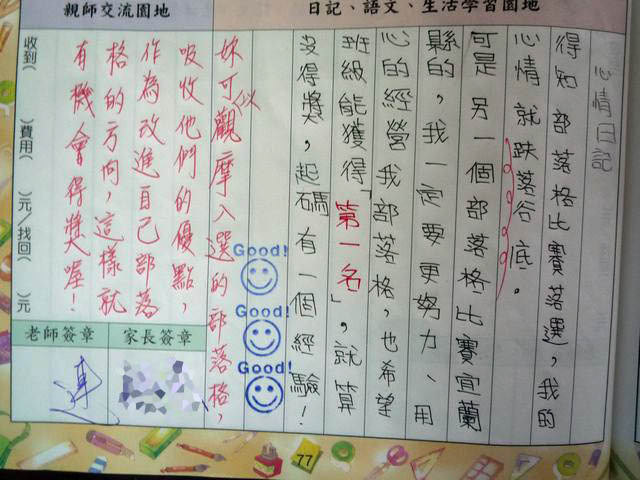 日記、語文、生活學習園地
心情日記
得知部落格比賽落選，我的
心情就跌落谷底。
可是另一個部落格比賽宜蘭
縣的，我一定要更努力、用
心的經營我部落格，也希望
班級能獲得「第一名」，就算
沒得獎，起碼有一個經驗！
Good!
Good!
Good!
親師交流園地
妳可以觀摩入選的部落格，
吸收他們的優點，
作為改進自己部落
格的方向，這樣就
有機會得獎喔！
收到( )費用( )元/找回( )元
家長簽章
老師簽章
77